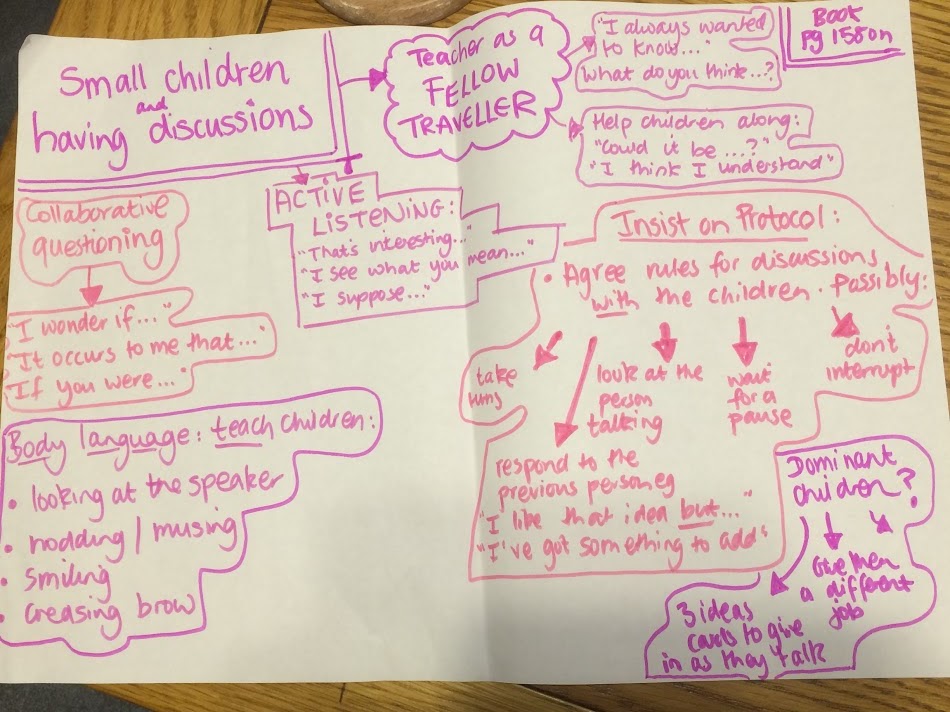 Small children
and
having discussions
Teacher as a
FELLOW
TRAVELLER
"I always wanted
to know..."
What do you think...?
Book
Pg 158 on
Help children along:
"Could it be ...?"
"I think I understand"
Collaborative
questioning
"I wonder if..."
"It occurs to me that..."
"If you were..."
ACTIVE
LISTENING:
"That's interesting..."
"I see what you mean..."
"I suppose..."
Insist on Protocol:
• Agree rules for discussions
with the children. Possibly:
take
turns
respond to the
previous person eg
"I like that idea but..."
"I've got something to add"
look at the
person
talking
wait
for a
pause
don't
interrupt
Body language: teach children:
• looking at the speaker
• nodding / musing
• smiling
• creasing brow
Dominant
children?
3 ideas
cards to give
in as they talk
Give them
a different
job